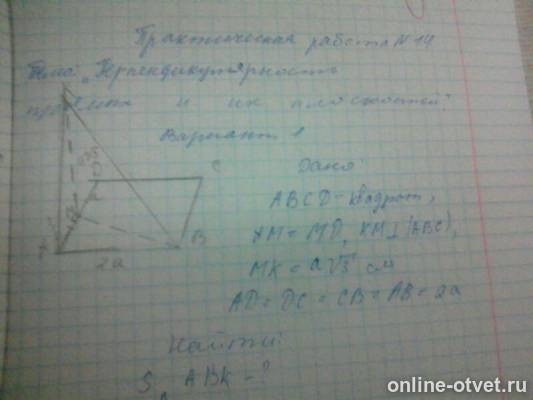 Практическая работа N 14
Тема: "Перпендикулярность
прямых и их плоскостей"
Вариант 1
Дано:
ABCD - квадрат,
AM = MD, KM ⊥ (ABC),
MK = a√3 см
AD = DC = CB = AB = 2a
Найти:
S ABK - ?
C
B
2a
online-otvet.ru